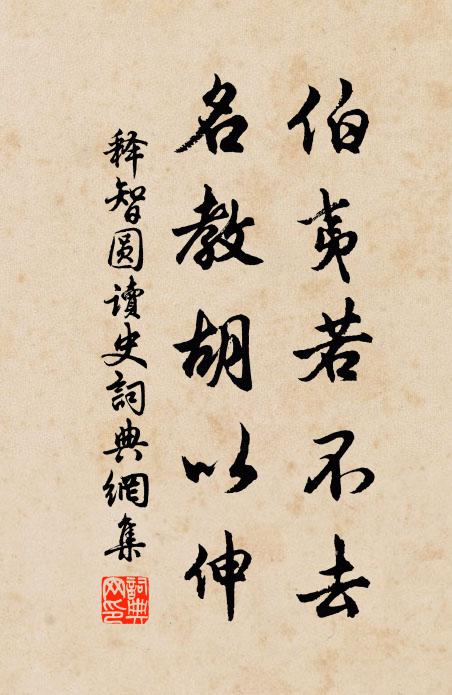 伯夷若不去
名教胡以伸
释智圆读史词典网集